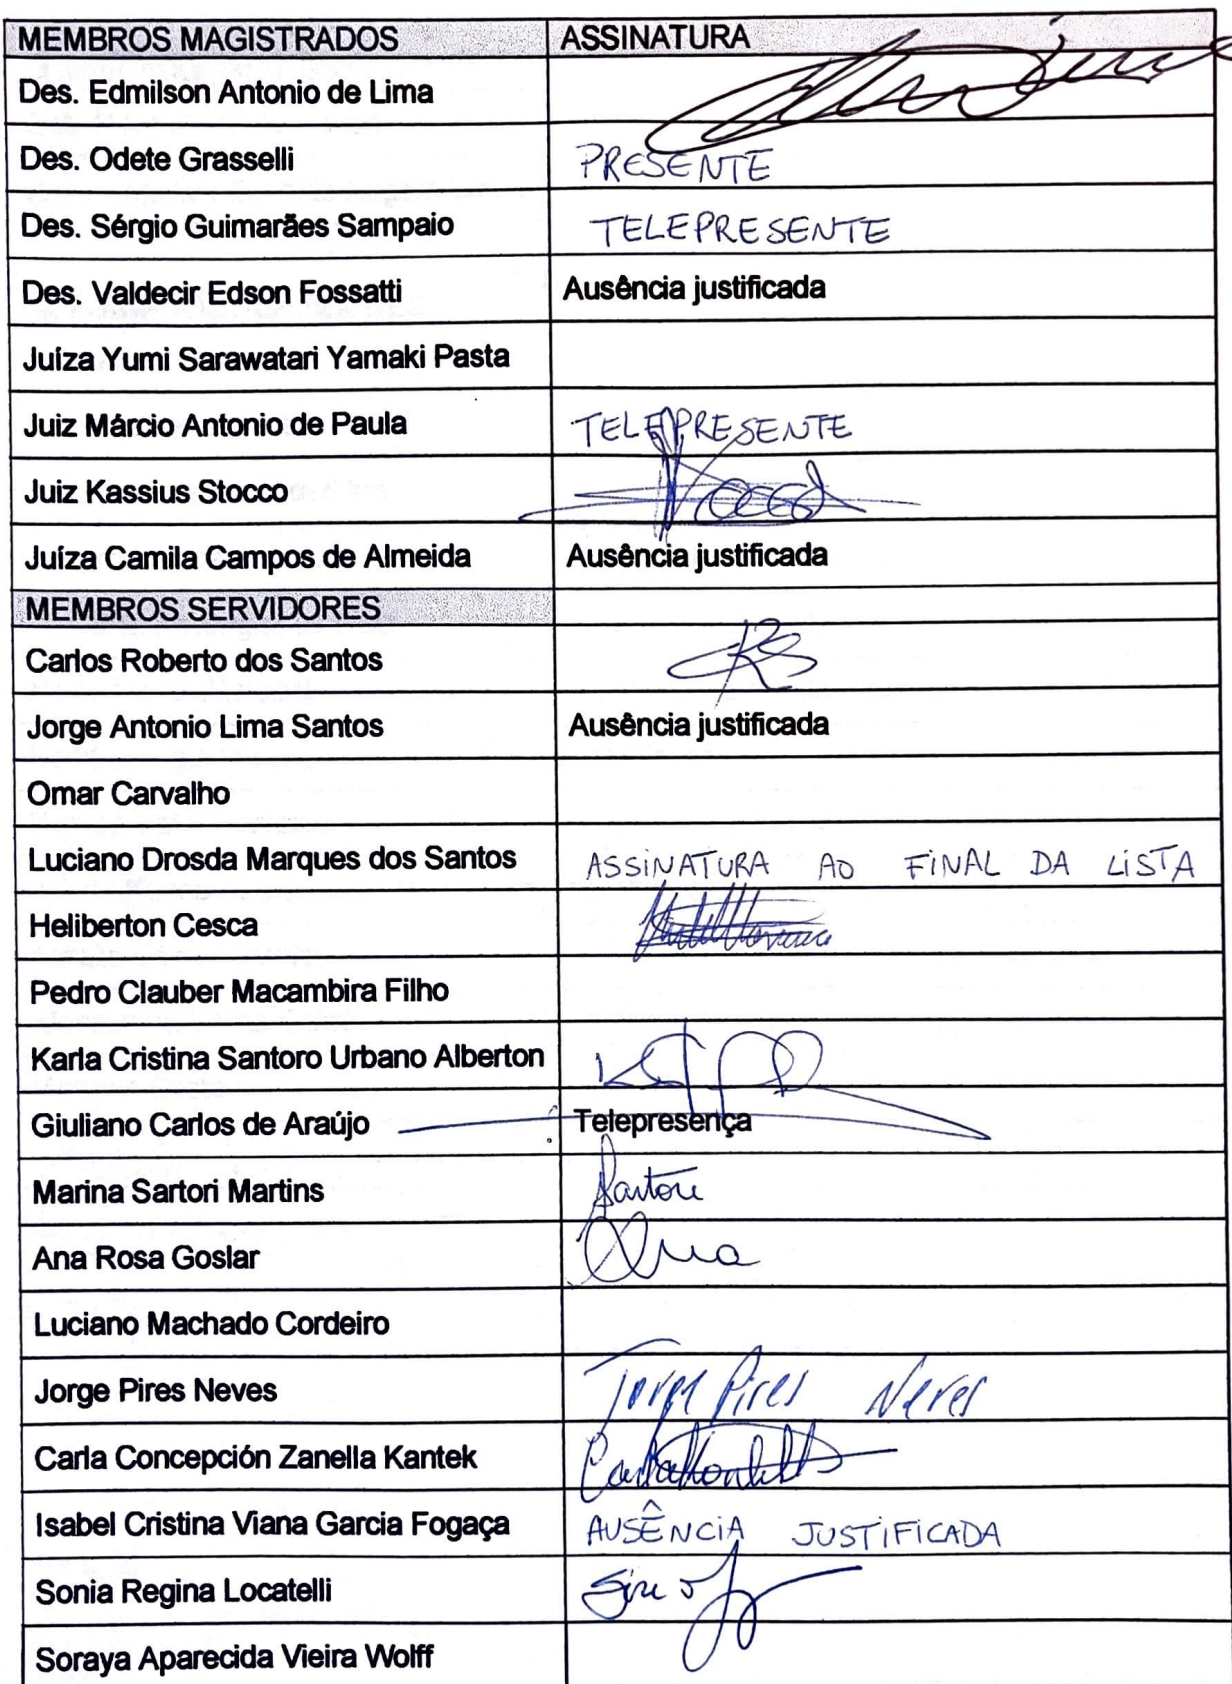 MEMBROS MAGISTRADOS ASSINATURA
Des. Edmilson Antonio de Lima
Des. Odete Grasselli PRESENTE
Des. Sérgio Guimarães Sampaio TELEPRESENTE
Des. Valdecir Edson Fossatti Ausência justificada
Juíza Yumi Sarawatari Yamaki Pasta
Juiz Márcio Antonio de Paula TELEPRESENTE
Juiz Kassius Stocco
Juíza Camila Campos de Almeida Ausência justificada
MEMBROS SERVIDORES
Carlos Roberto dos Santos
Jorge Antonio Lima Santos Ausência justificada
Omar Carvalho
Luciano Drosda Marques dos Santos ASSINATURA AO FINAL DA LISTA
Heliberton Cesca
Pedro Clauber Macambira Filho
Karla Cristina Santoro Urbano Alberton
Giuliano Carlos de Araújo Telepresença
Marina Sartori Martins Sartori
Ana Rosa Goslar Ana
Luciano Machado Cordeiro
Jorge Pires Neves Jorge Pires Neves
Carla Concepción Zanella Kantek
Isabel Cristina Viana Garcia Fogaça AUSÊNCIA JUSTIFICADA
Sonia Regina Locatelli
Soraya Aparecida Vieira Wolff